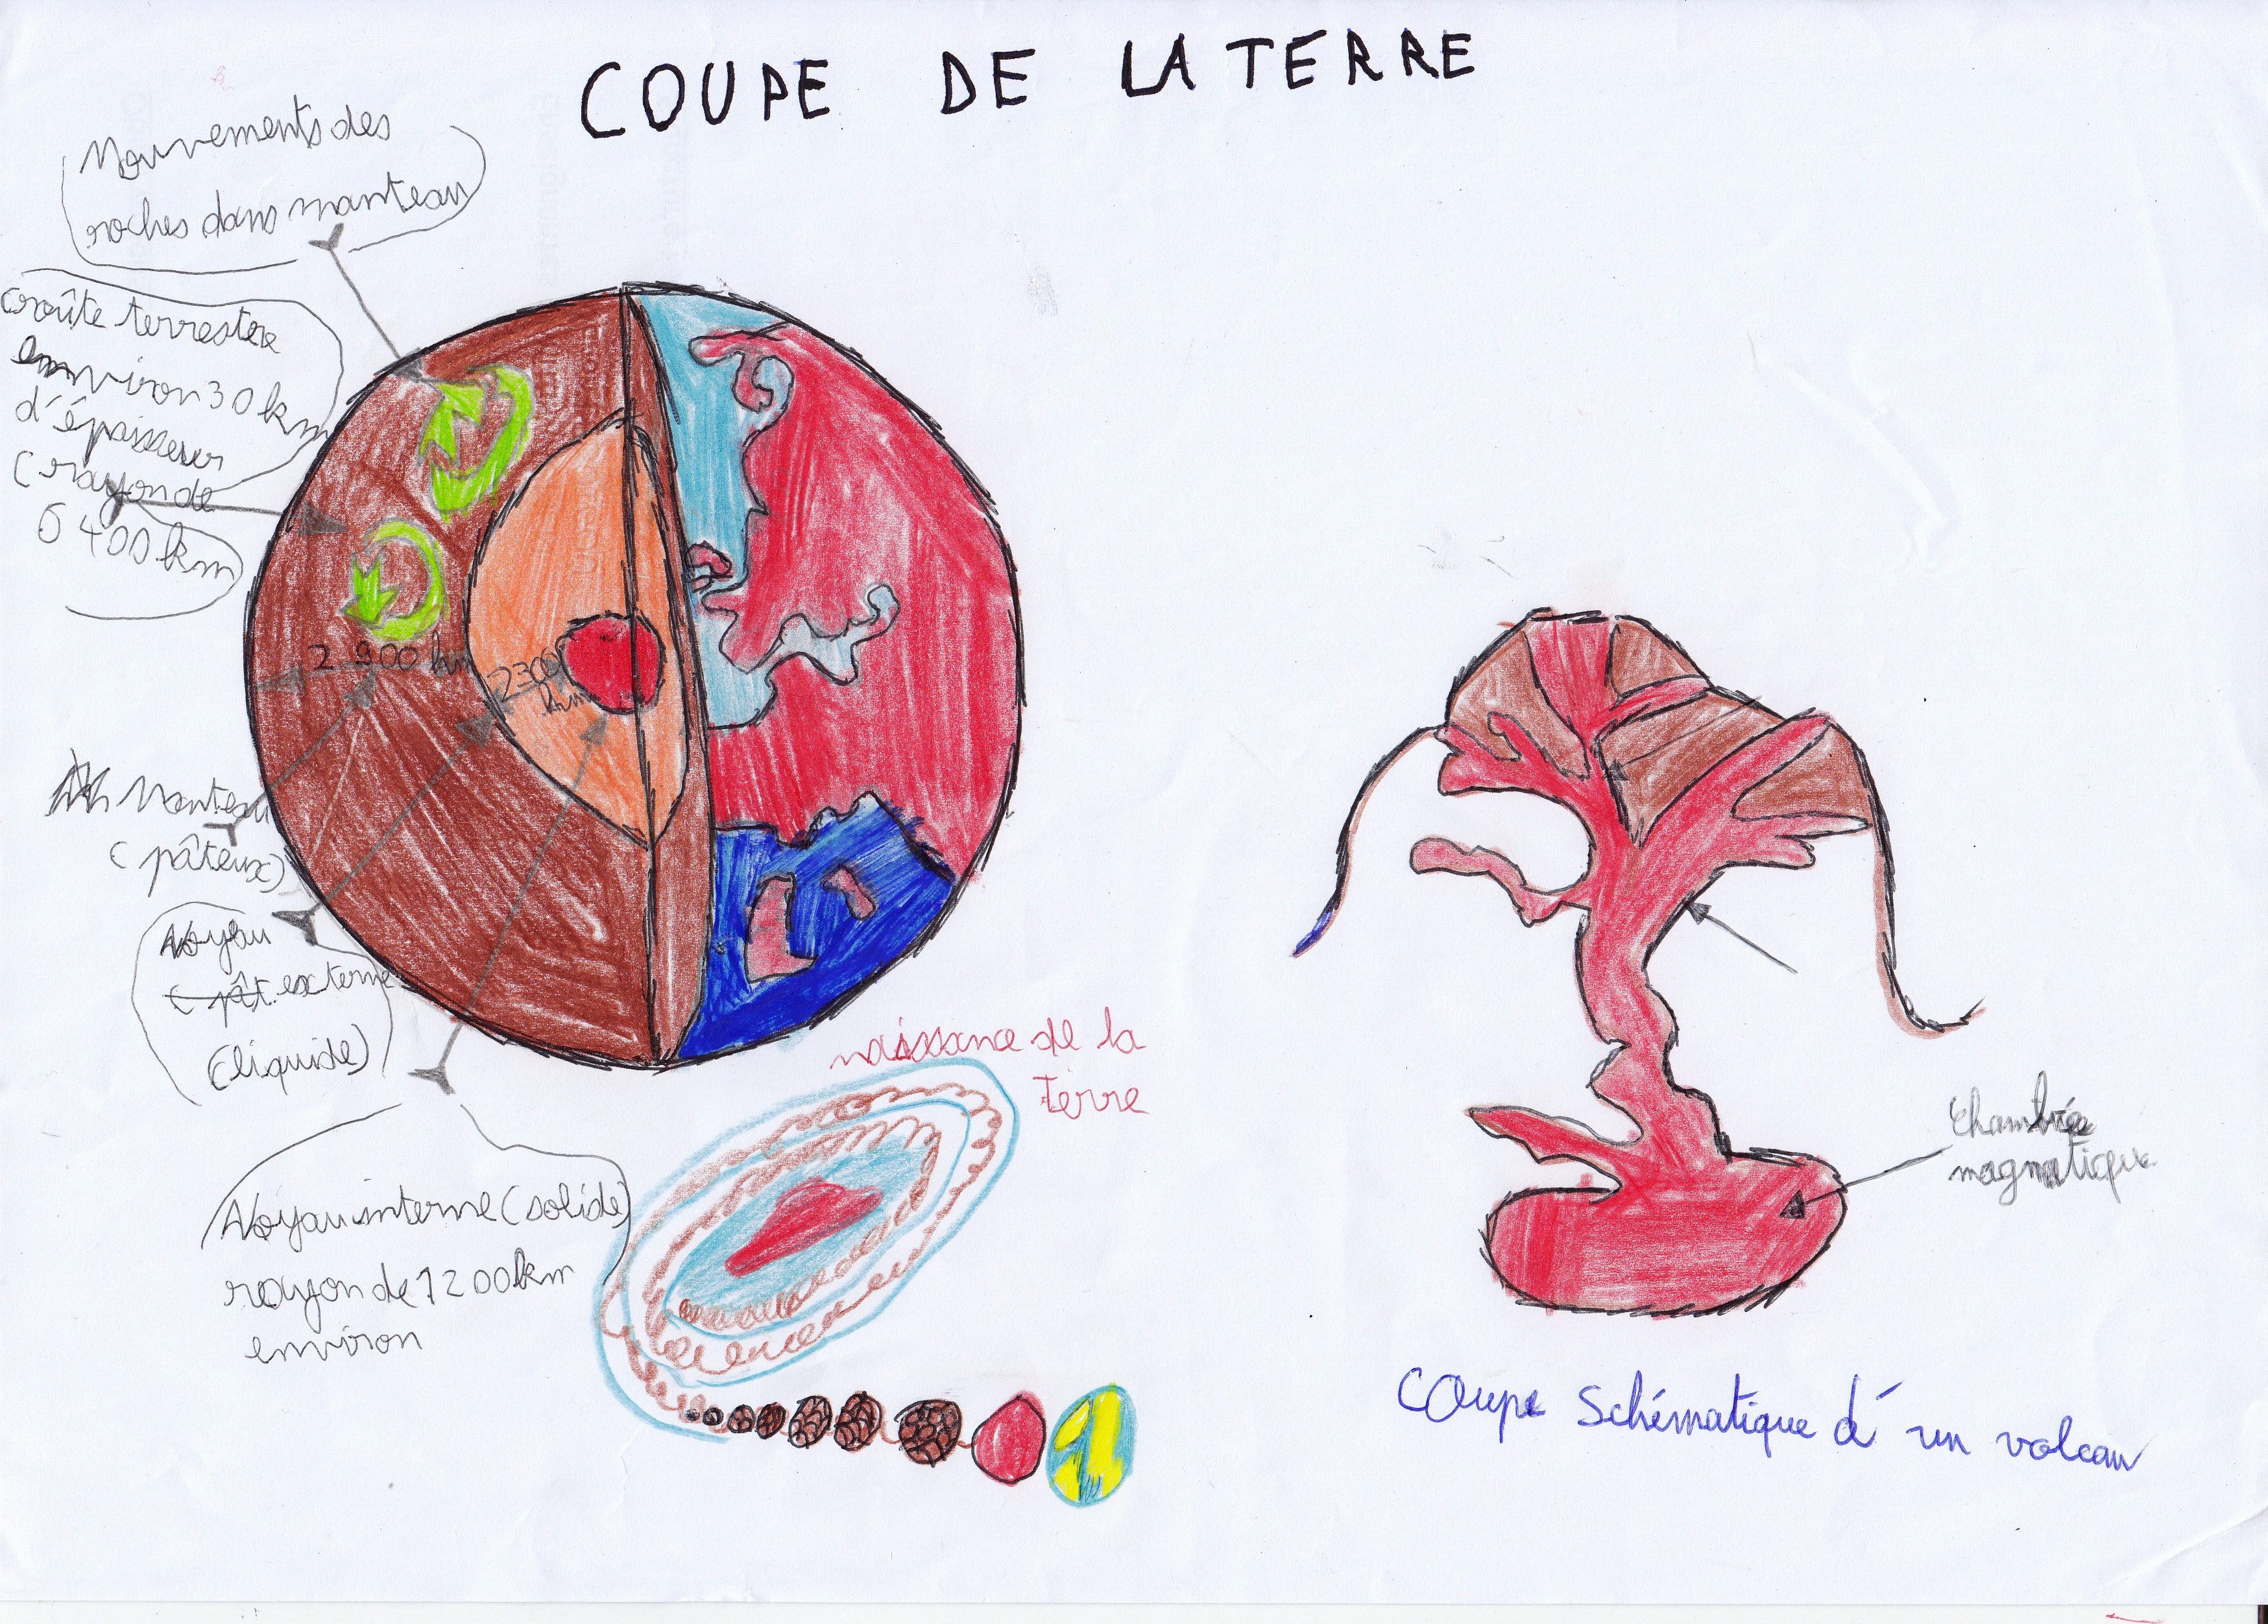 COUPE DE LA TERRE
Mouvements des
roches dans manteau
croûte terrestre
environ 30 km
d'épaisseur
(rayon de
6 400 km)
2 900 km
2300
km
Manteau
(pâteux)
Noyau
externe
(liquide)
Noyau interne (solide)
rayon de 1200 km
environ
naissance de la
terre
Chambre
magmatique
Coupe Schématique d'un volcan